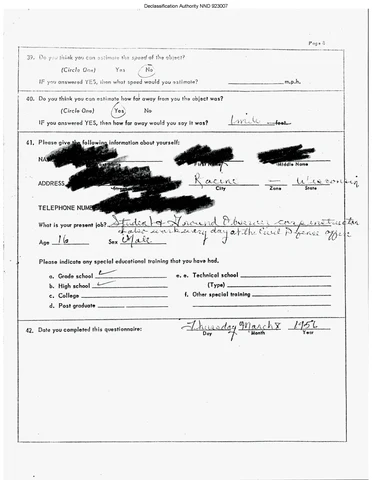 Declassification Authority NND 923007
Page 5
39. Do you think you can estimate the speed of the object?
(Circle One) Yes No
IF you answered YES, then what speed would you estimate? m.p.h.
40. Do you think you can estimate how far away from you the object was?
(Circle One) Yes No
IF you answered YES, then how far away would you say it was? 1 mile feet.
41. Please give the following information about yourself:
NAME First Name Middle Name
ADDRESS Racine — Wisconsin
Street City Zone State
TELEPHONE NUMBER
What is your present job? Student & Ground Observer corps instructor
& also work every day at the Civil Defense office
Age 16 Sex Male
Please indicate any special educational training that you have had.
a. Grade school ✓ e. e. Technical school
b. High school ✓ (Type)
c. College f. Other special training
d. Post graduate
42. Date you completed this questionnaire: Thursday March 8 1956
Day Month Year